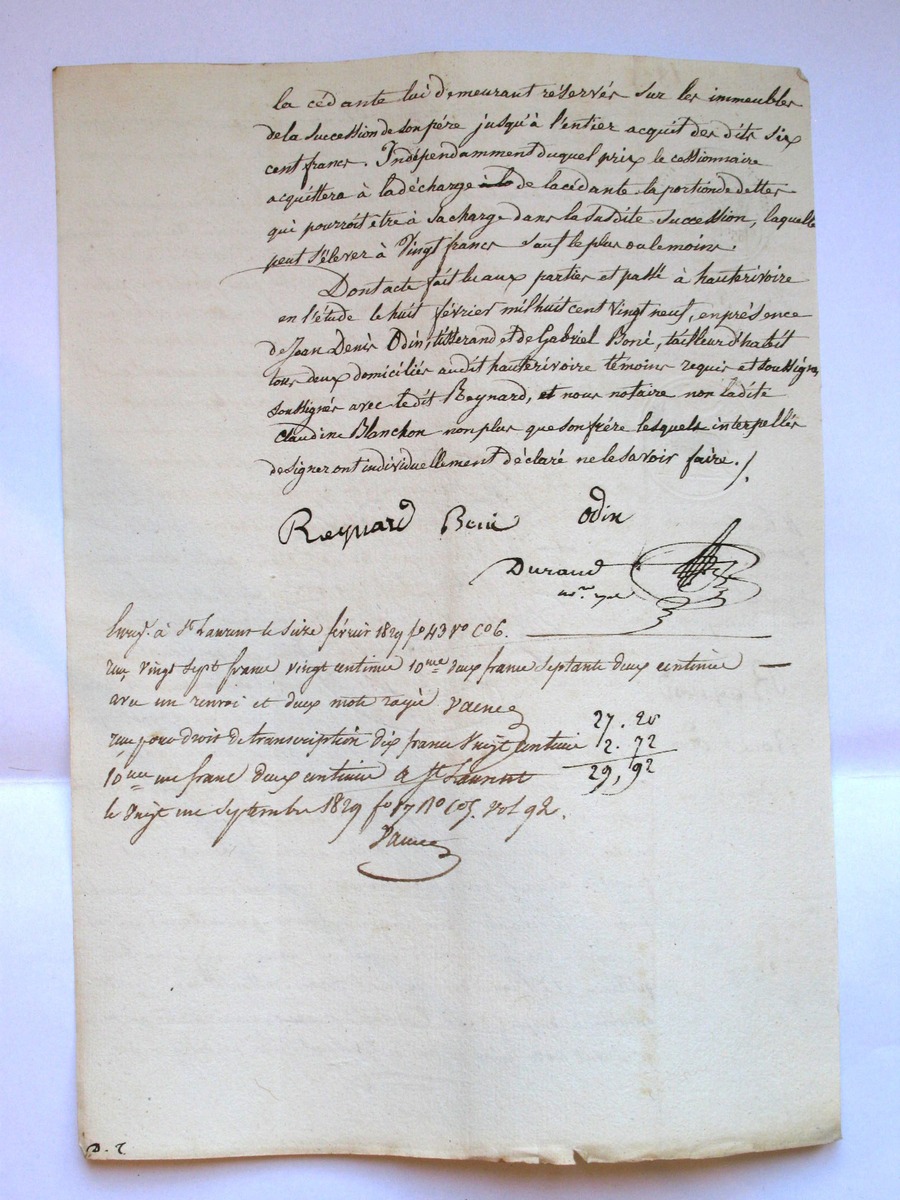 la cédante lui demeurant réservés sur les immeubles
de la succession de son père jusqu'à l'entier acquit des dits six
cent francs. Indépendamment duquel prix le cessionnaire
acquittera à la décharge à la de la cédante la portion de dettes
qui pourroit être à sa charge dans la susdite succession, laquelle
peut s'élever à Vingt francs sauf le plus ou le moins.
Dont acte fait lu aux parties et passé à hauterivoire
en l'étude le huit février mil huit cent vingt neuf, en présence
de Jean Denis Odin, tisserand et de Gabriel Boni, tailleur d'habit
tous deux domiciliés audit hauterivoire témoins requis et soussignés
soussignés avec le dit Reynard, et nous notaire non ladite
Claudine Blanchon non plus que son frère lesquels interpellés
de signer ont individuellement déclaré ne le savoir faire./
Reynard Boni Odin
Durand
Enregt. à St Laurent le seize février 1829 fo 43 vo Co 6.
reçu vingt sept francs vingt centimes 10me deux francs septante deux centimes
avec un renvoi et deux mots rayés
27. 20
reçu pour droit de transcription dix francs vingt centimes
2. 72
10me un franc deux centimes a St Laurent
29, 92
le vingt un septembre 1829 fo 17 no Co 5. vol 92.
D. T